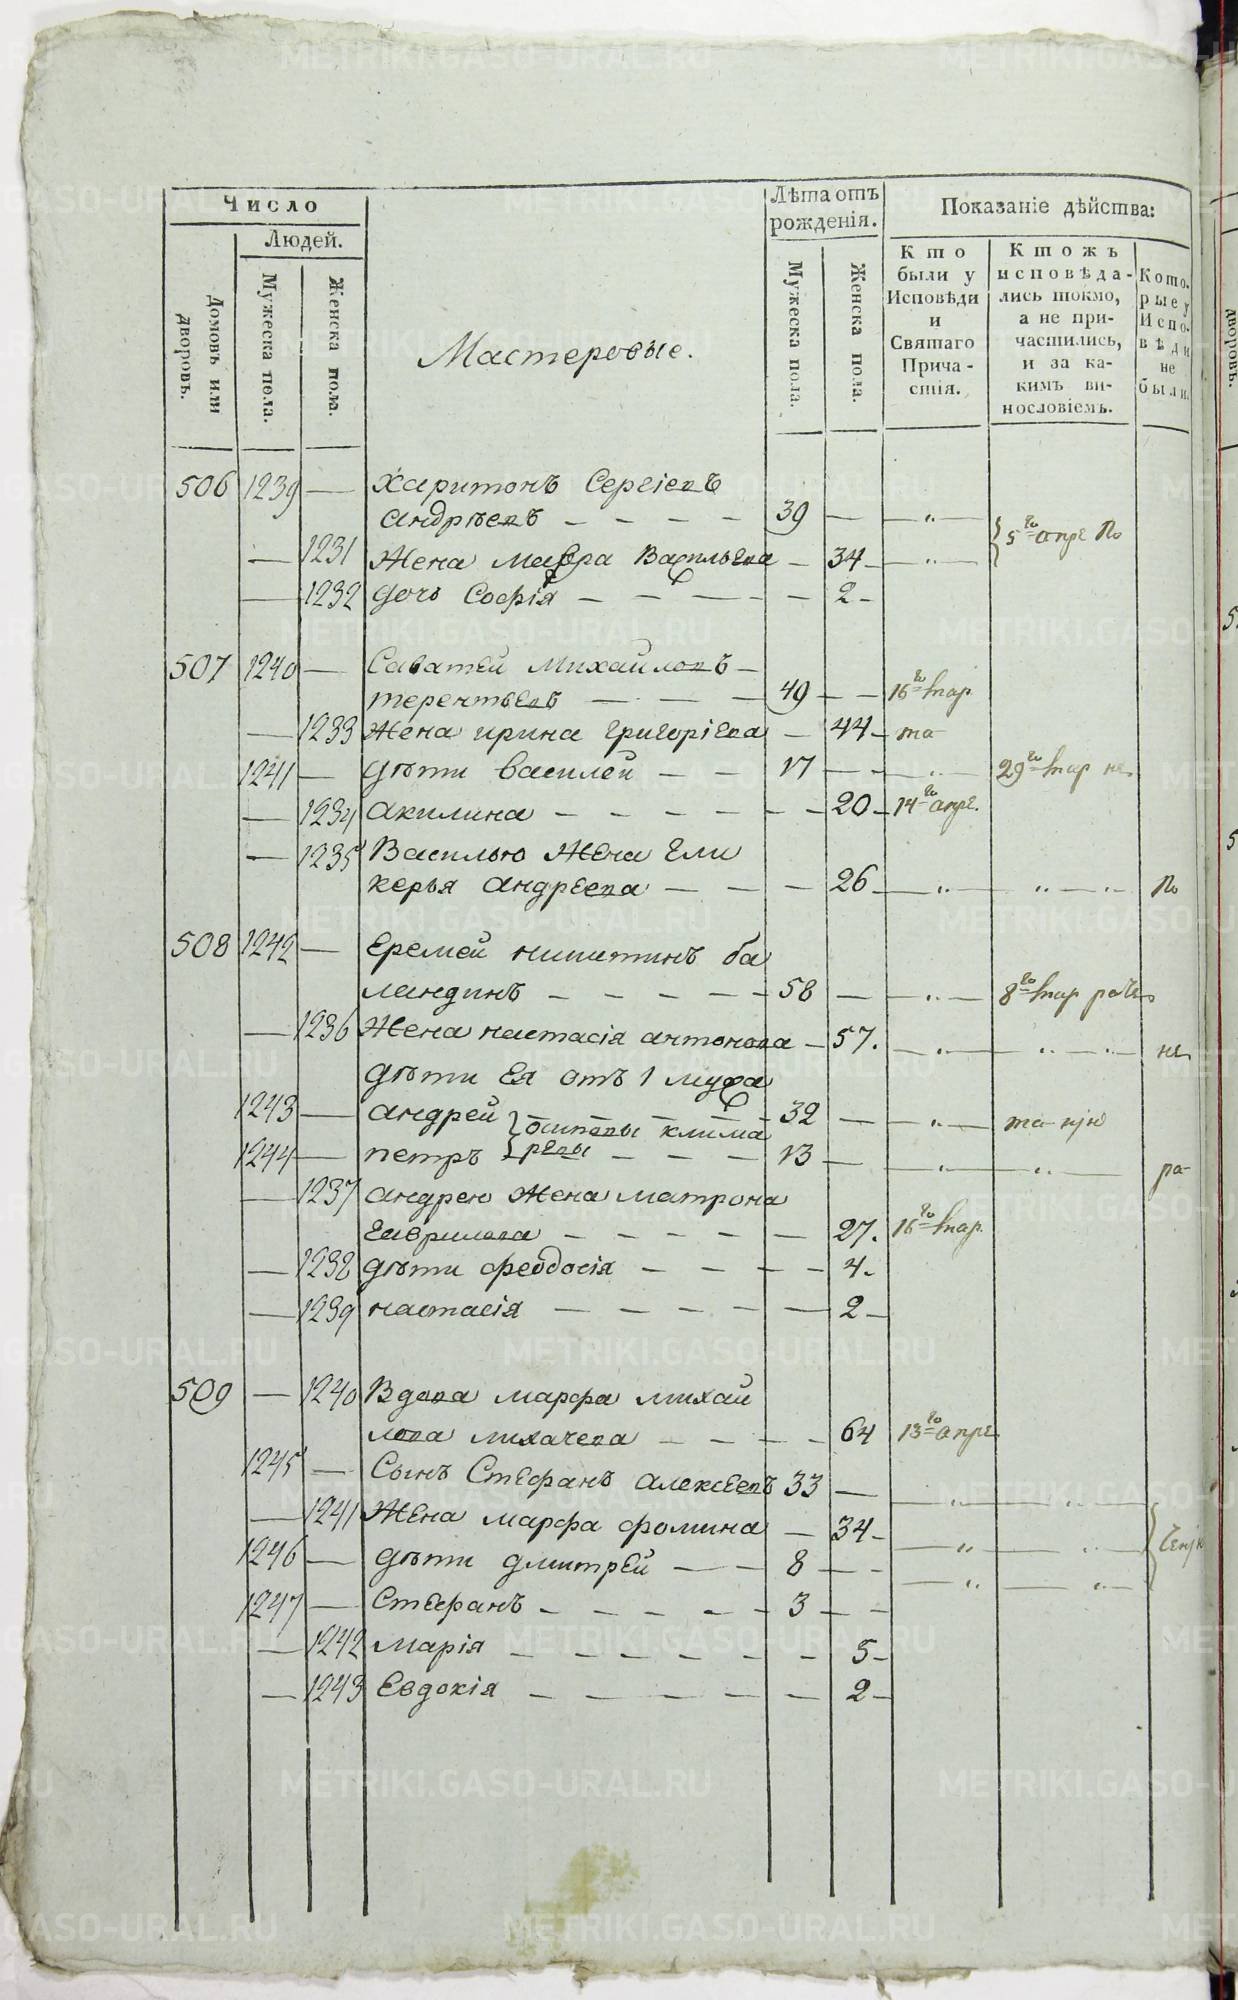 Число
Людей.
Домовъ или дворовъ.
Мужеска пола.
Женска пола.
Мастеровые.
Лѣта отъ рожденія.
Мужеска пола.
Женска пола.
Показаніе дѣйства:
Кто были у Исповѣди и Святаго Причастія.
Ктожъ исповѣдались токмо, а не причастились, и за какимъ винословіемъ.
Которые у Исповѣди не были.
506 1239 — Харитонъ Сергіевъ
андрѣевъ — — — — 39 — — „ — 5го апре По
— 1231 Жена Мавра Васильева — 34 — — „ —
— 1232 дочь Софія — — — — 2 —
507 1240 — Саватей Михайловъ —
терентьевъ — — — 49 — — 16го мар
— 1233 Жена ирина григоріева — 44 — та
1241 — дѣти василей — — 17 — — — „ — 29го мар не
— 1234 акилина — — — — — 20 — 14го апре.
— 1235 Василью Жена гли
керья андреева — — — 26 — — „ — „ — „ По
508 1242 — еремей никитинъ ба
ландинъ — — — — — 58 — — „ — 8го мар
— 1236 Жена настасія антонова — 57. — „ — „ — „ не
дѣти ея отъ 1 мужа
1243 — андрей — — — — 32 — — „ — та
осиповы клима
1244 — петръ ревы — — — 13 — — „ — „ — ра
— 1237 андрею Жена матрона
гаврилова — — — — — 27. 16го мар.
— 1238 дѣти феодосія — — — — 4 —
— 1239 настасія — — — — — 2 —
509 — 1240 Вдова марфа михай
лова лихачева — — — — 64 13го апре.
1245 — Сынъ Стефанъ алексеевъ 33 — — „ — „ —
— 1241 Жена марфа фомина — 34 — — „ — „ —
1246 — дѣти дмитрей — — 8 — — — „ — „ —
1247 — Стефанъ — — — — — 3 — —
— 1242 марія — — — — — — 5 —
— 1243 Евдокія — — — — — — 2 —
METRIKI.GASO-URAL.RU